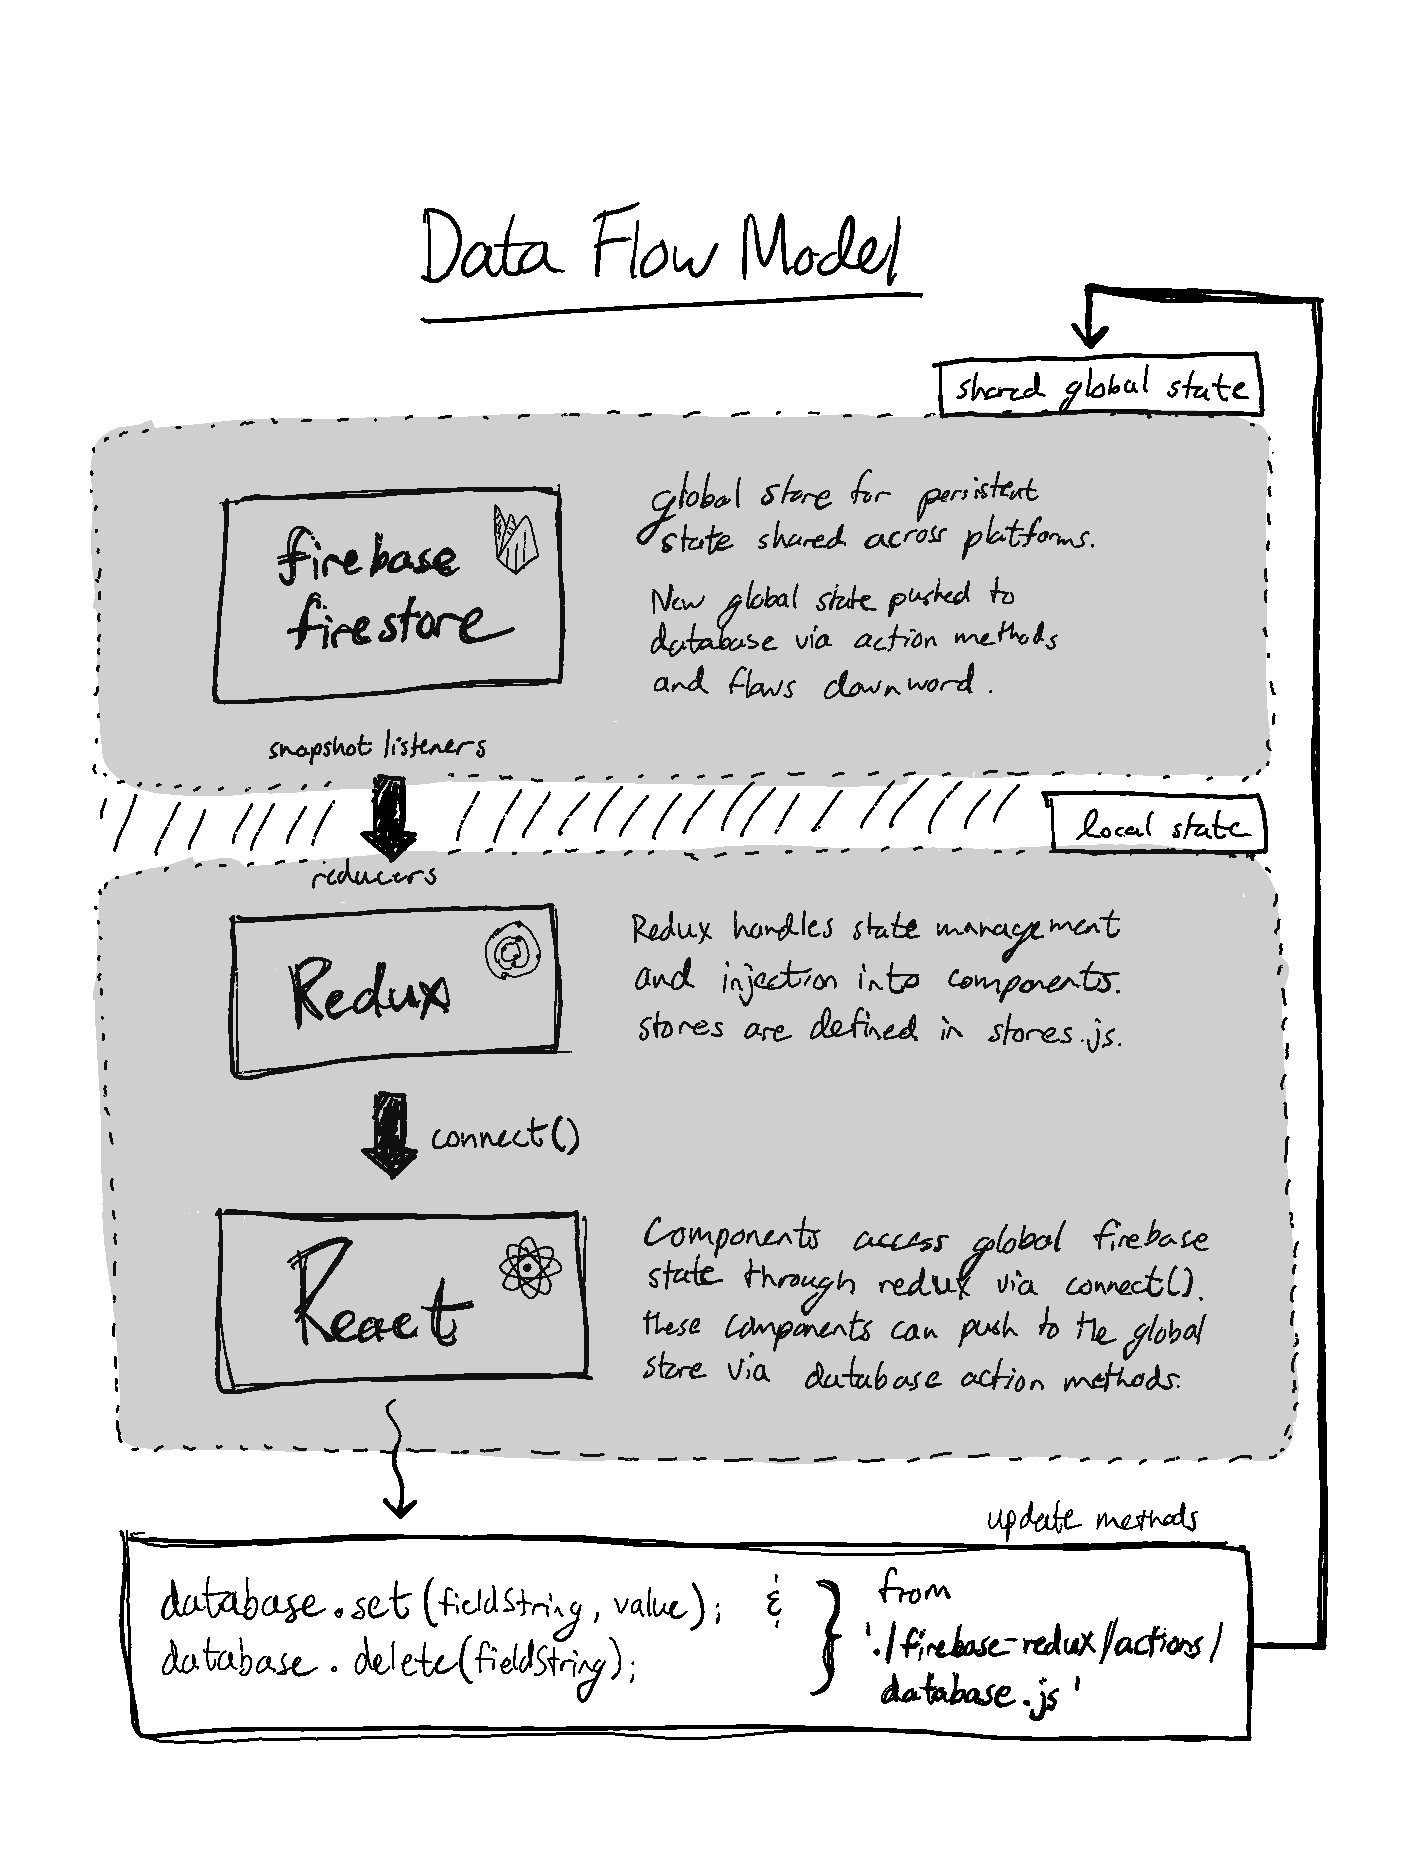 Data Flow Model
shared global state
firebase
firestore
global store for persistent
state shared across platforms.
New global state pushed to
database via action methods
and flows downword.
snapshot listeners
local state
reducers
Redux
Redux handles state management
and injection into components.
stores are defined in stores.js.
connect()
React
Components access global firebase
state through redux via connect().
these components can push to the global
store via database action methods.
update methods
database.set(fieldString, value); &
database.delete(fieldString);
from
'./firebase-redux/actions/
database.js'